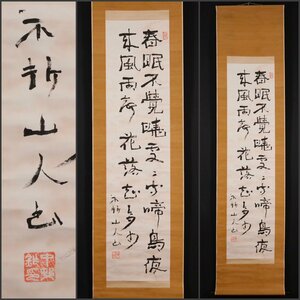 不折山人
春眠不覺曉處々聞啼鳥夜
来風雨声花落知多少
不折山人
春眠不覺曉處々聞啼鳥夜
来風雨声花落知多少
不折山人